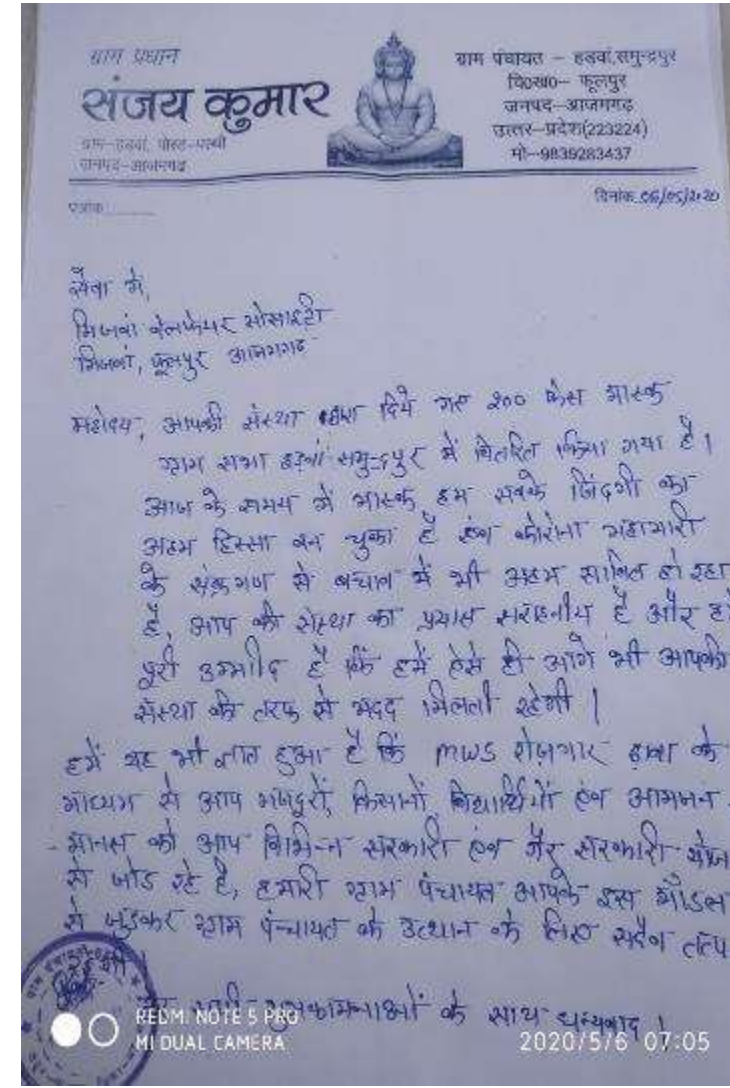 ग्राम प्रधान
संजय कुमार
ग्राम-हडवां, पोस्ट-
जनपद-आजमगढ़
ग्राम पंचायत – हडवां,समुन्द्रपुर
वि०ख०– फूलपुर
जनपद–आजमगढ़
उत्तर–प्रदेश(223224)
मो०–9839283437
पत्रांक
दिनांक 06/05/2020
सेवा में,
मिजवां वेलफेयर सोसाइटी
मिजवां, फूलपुर आजमगढ़
महोदय, आपकी संस्था द्वारा दिये गए 200 फेस मास्क
ग्राम सभा हडवां समुन्द्रपुर में वितरित किया गया है।
आज के समय में मास्क हम सबके जिंदगी का
अहम हिस्सा बन चुका है एंव कोरोना महामारी
के संक्रमण से बचाव में भी अहम साबित हो रहा
है, आप की संस्था का प्रयास सराहनीय है और ह
पूरी उम्मीद है कि हमें ऐसे ही आगे भी आपकी
संस्था की तरफ से मदद मिलती रहेगी।
हमें यह भी ज्ञात हुआ है कि MWS रोजगार ढाबा के
माध्यम से आप मजदूरों, किसानों, विद्यार्थियों एंव आमजन
मानस को आप विभिन्न सरकारी एंव गैर सरकारी योज
से जोड रहे है, हमारी ग्राम पंचायत आपके इस मॉडल
से जुड़कर ग्राम पंचायत के उत्थान के लिए सदैव तत्प
रहेगी।
शुभकामनाओं के साथ धन्यवाद।
REDMI NOTE 5 PRO
MI DUAL CAMERA
2020/5/6 07:05